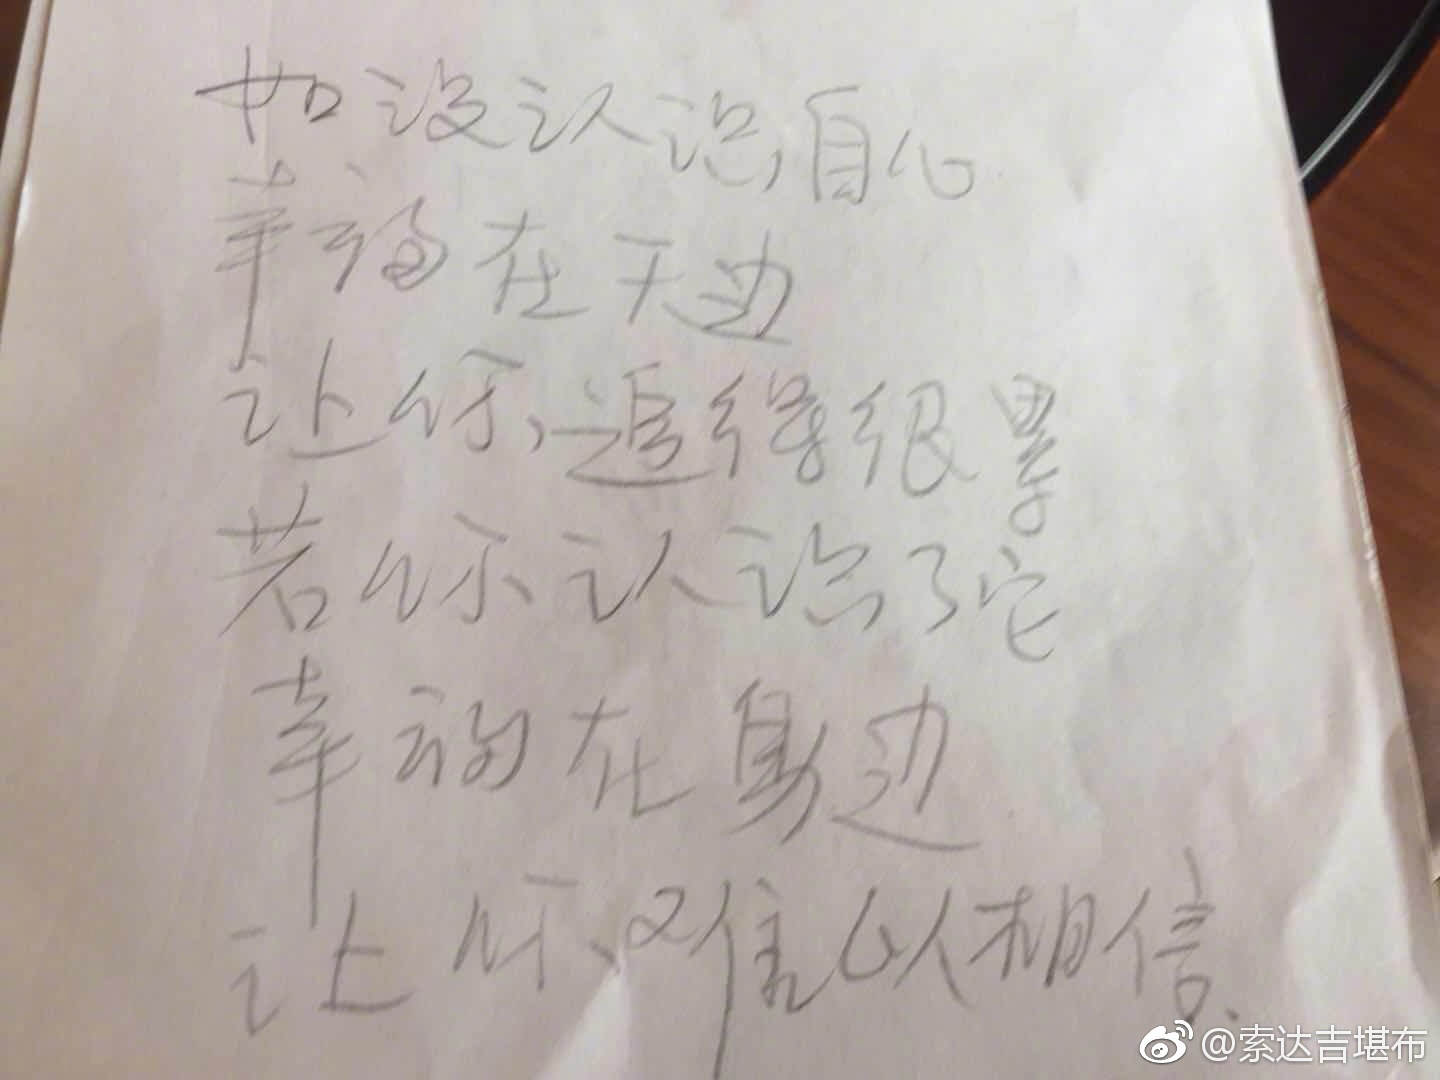 如没认识自心
幸福在天边
让你追得很累
若你认识了它
幸福在身边
让你难以相信.
@索达吉堪布